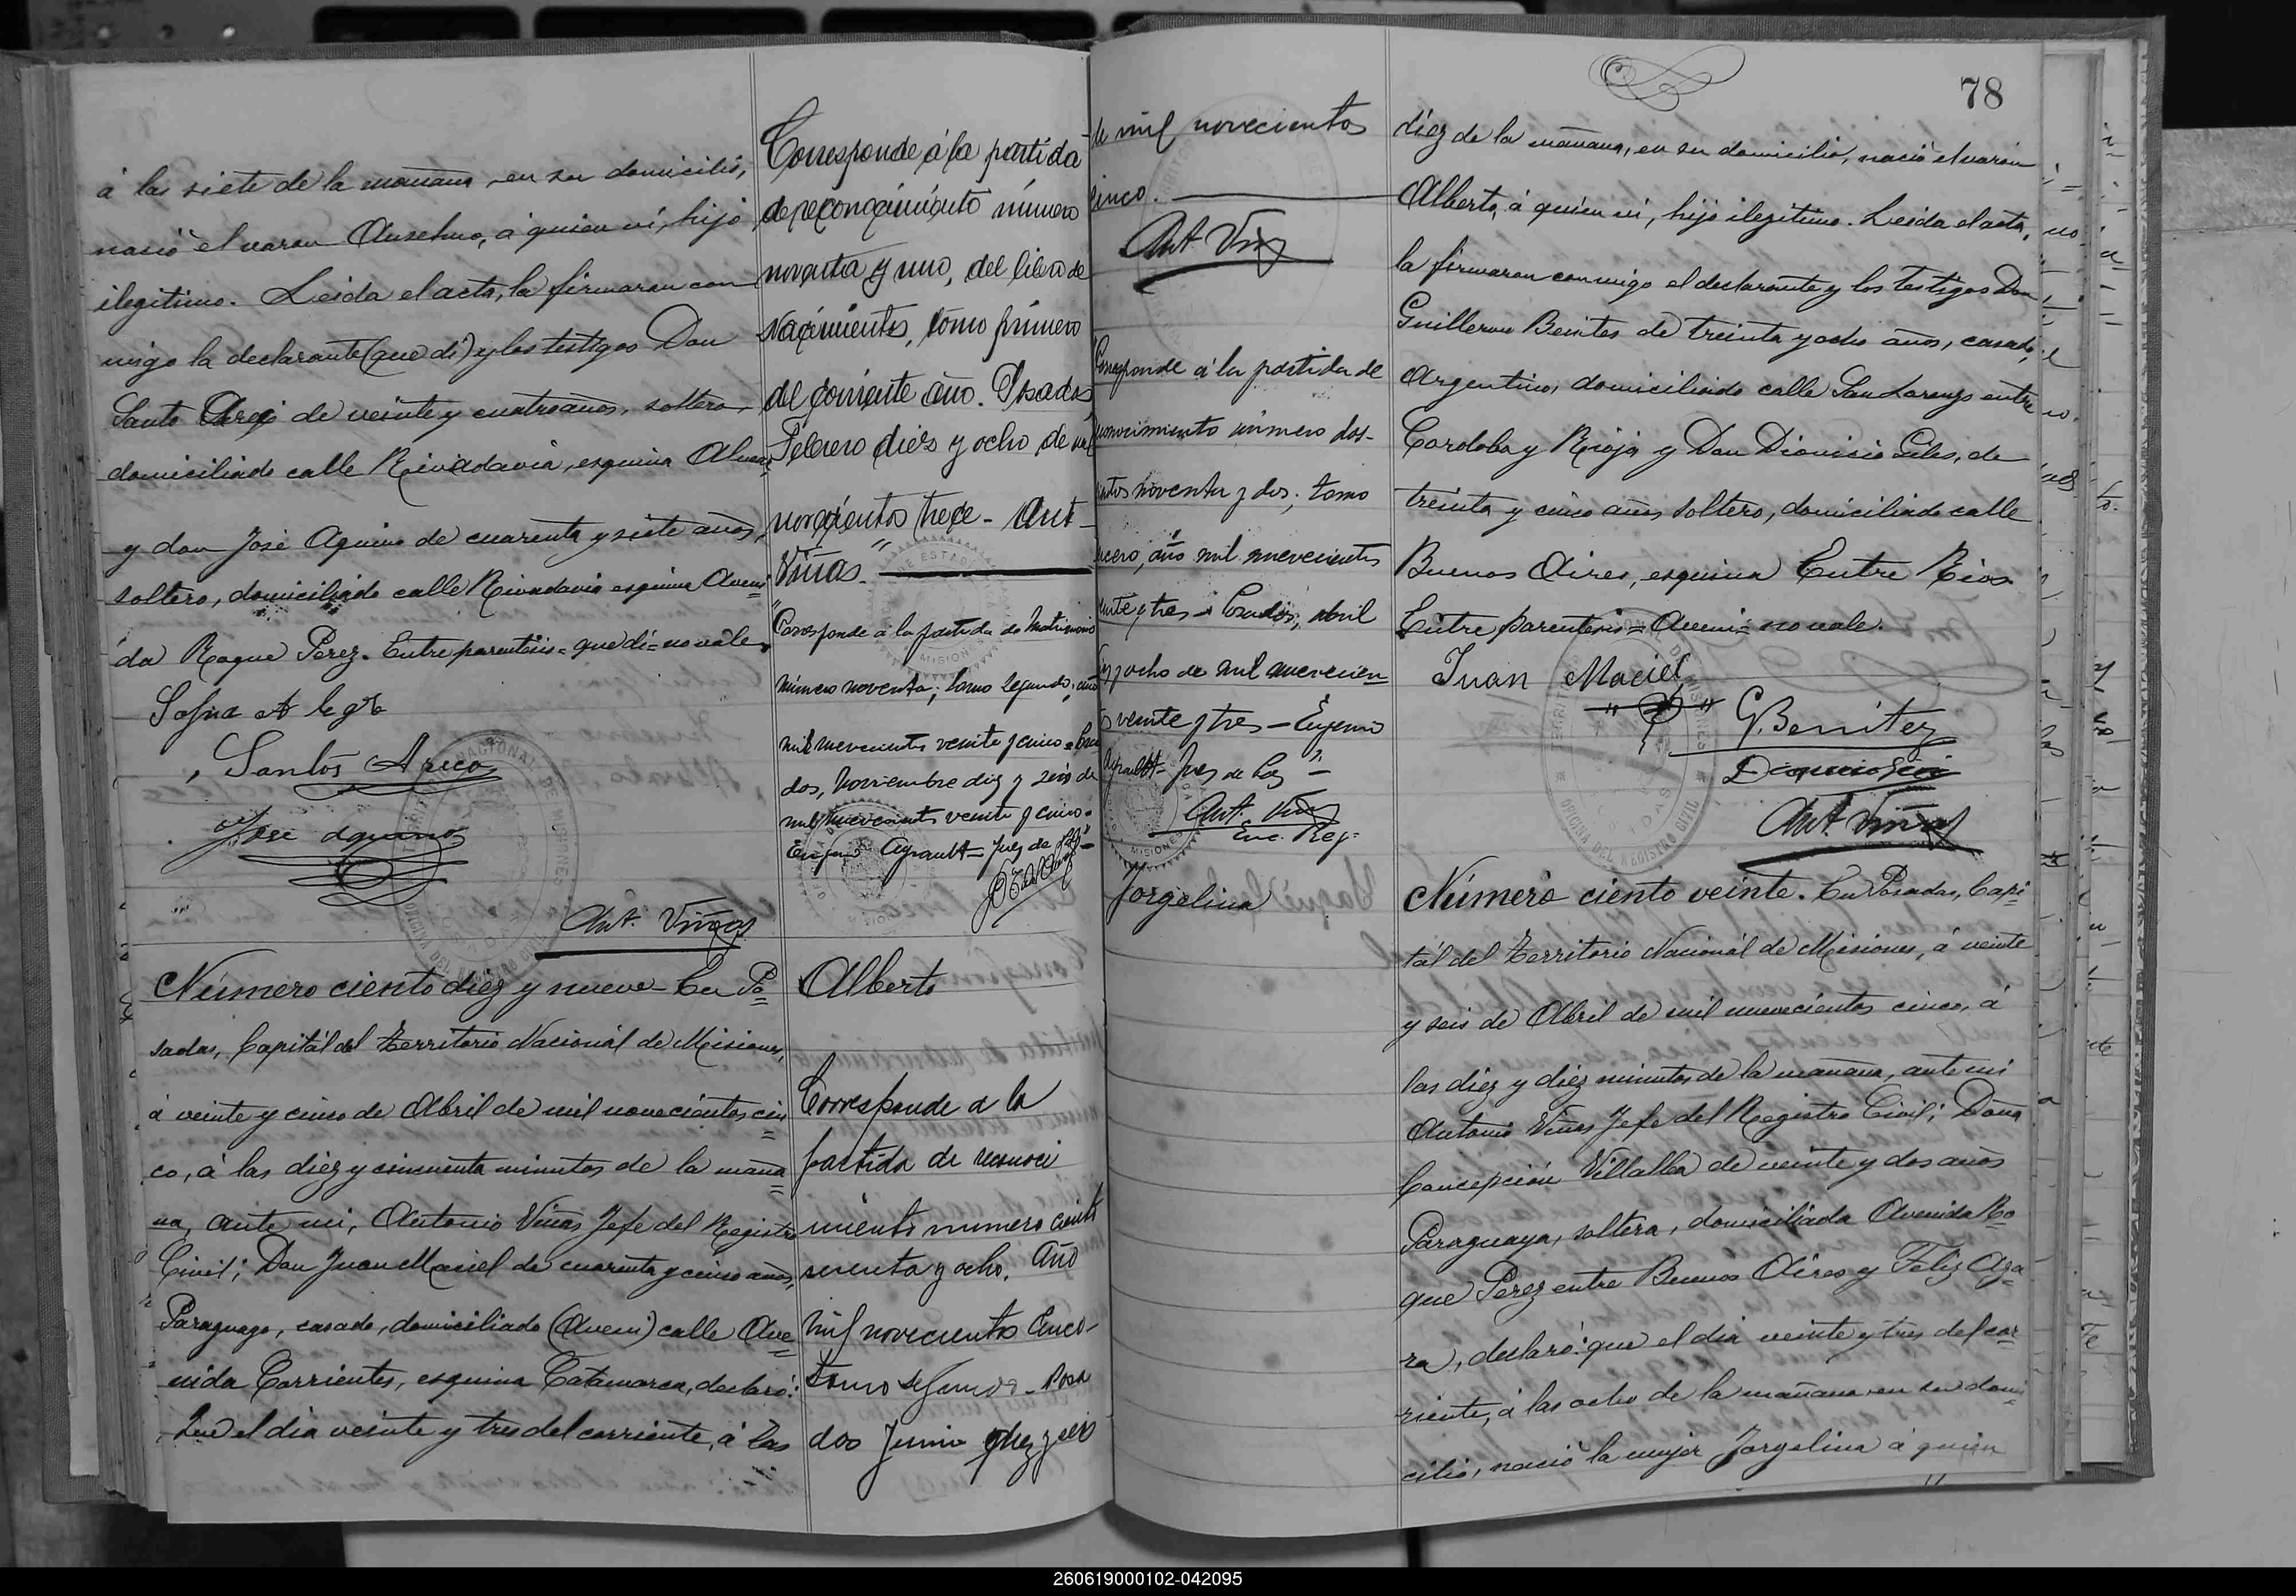 á las siete de la mañana, en su domicilio,
nació el varon Anselmo, á quien ví, hijo
ilegítimo. Leida el acta, la firmaron con
migo la declarante (que di) y los testigos Don
Santo de veinte y cuatro años, soltero,
domiciliado calle Rivadavia, esquina Aveni
y don José Aquino de cuarenta y siete años,
soltero, domiciliado calle Rivadavia esquina Aveni=
da Roque Perez. Entre parentésis = que di = no vale.
Santos Arico
José Aquino
Ant. Viñas
Número ciento diez y nueve - En Po=
sadas, Capitál del Territorio Nacionál de Misiones,
á veinte y cinco de Abril de mil novecientos cin=
co, á las diez y cincuenta minutos de la maña=
na, ante mi, Antonio Viñas Jefe del Registro
Civil; Don Juan Maciel de cuarenta y cinco años,
Paraguayo, casado, domiciliado (Aveni) calle Ave=
nida Corrientes, esquina Catamarca, declaró:
Que el dia veinte y tres del corriente, á las
Corresponde á la partida
de reconocimiento número
noventa y uno, del libro de
Nacimientos, tomo primero
del corriente año. Posadas
Febrero diez y ocho de mil
novecientos trece - Ant-
Viñas."
"Corresponde á la partida de Matrimonio
número noventa; tomo segundo; año
mil novecientos veinte y cinco = Posa
dos, Noviembre diez y seis de
mil novecientos veinte y cinco =
Eugenio Ayrault = Juez de Paz =
Alberto
Corresponde a la
partida de reconoci
miento numero ciento
sesenta y ocho. Año
mil novecientos cinco-
tomo segundo - Posa
das Junio diez y seis
de mil novecientos
cinco.
Ant. Viñ
Corresponde á la partida de
conocimiento número dos-
entos noventa y dos; tomo
ercero, año mil nuevecientos
einte y tres = Posadas, abril
diez y ocho de mil nuevecien=
s veinte y tres - Eugenio
Ayrault = Juez de Paz" =
Ant. Viñ
Enc. Reg.
Jorgelina
78
diez de la mañana, en su domicilio, nació el varón
Alberto, á quien ví, hijo ilegítimo. Leida el acta,
la firmaron conmigo el declarante y los testigos Don
Guillermo Benites de treinta y ocho años, casado,
Argentino, domiciliado calle San Lorenzo entre
Cordoba y Rioja y Don Dionisio Giles, de
treinta y cinco años, soltero, domiciliado calle
Buenos Aires, esquina Entre Rios
Entre parentesis = Aveni = no vale.
Juan Maciel
G. Benitez
Ant. Viñas
Número ciento veinte. En Posadas, Capi=
tál del Territorio Nacionál de Misiones, á veinte
y seis de Abril de mil nuevecientos cinco, á
las diez y diez minutos de la mañana, ante mi
Antonio Viñas Jefe del Registro Civil; Doña
Concepción Villalba de veinte y dos años
Paraguaya, soltera, domiciliada Avenida Ro=
que Perez entre Buenos Aires y Feliz Aza=
ra, declaró: que el dia veinte y tres del cor=
riente, á las ocho de la mañana en su domi=
cilio, nació la mujer Jorgelina á quien
260619000102-042095